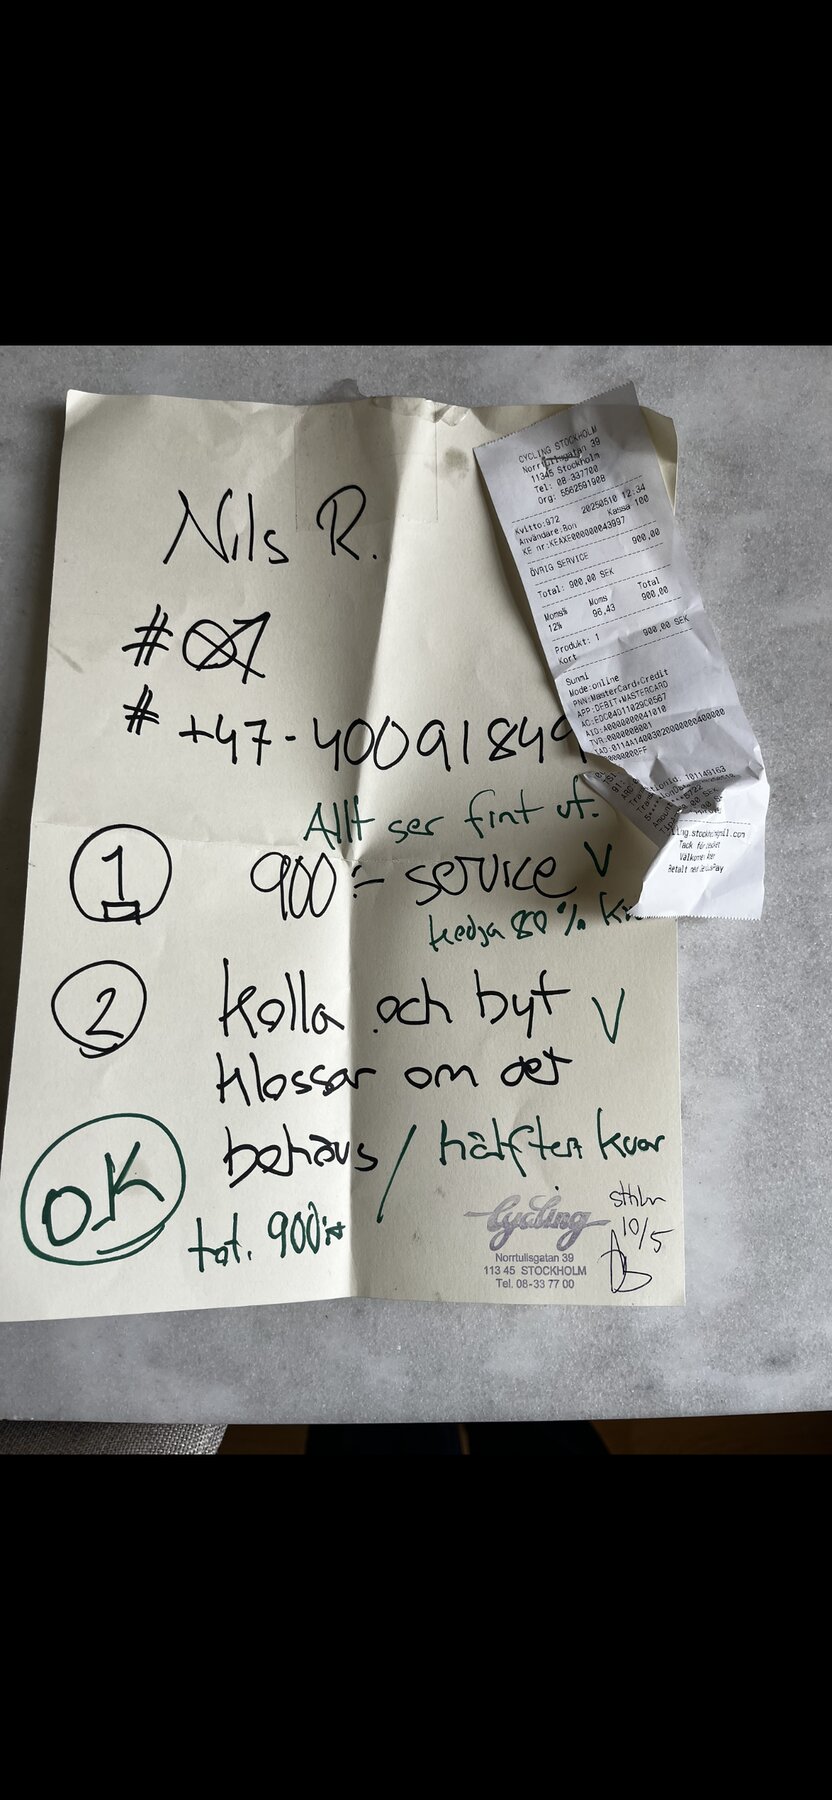 Nils R.
#
# +47-40091849
Allt ser fint ut.
1 900:- service V
kedja 80%
2 Kolla och byt V
klossar om det
behövs / hälften kvar
OK
tot. 900:-
Cycling
Norrtullsgatan 39
113 45 STOCKHOLM
Tel. 08-33 77 00
sthlm
10/5
CYCLING STOCKHOLM
Norrtullsgatan 39
11345 Stockholm
Tel: 08-337700
Org: 5562591908
Kvitto:972 20250510 12.34
Användare:Bon Kassa 100
KE nr:KEAXE000000043997
ÖVRIG SERVICE 900,00
Total: 900,00 SEK
Moms% Moms Total
12% 96,43 900,00
Produkt: 1
Kort 900,00 SEK
Sunmi
Mode:online
PNN:MasterCard+Credit
APP:DEBIT+MASTERCARD
AC:EDC04D11029C0567
AID:A0000000041010
TVR:0000008001
Tack för
Välkommen
Betalt med